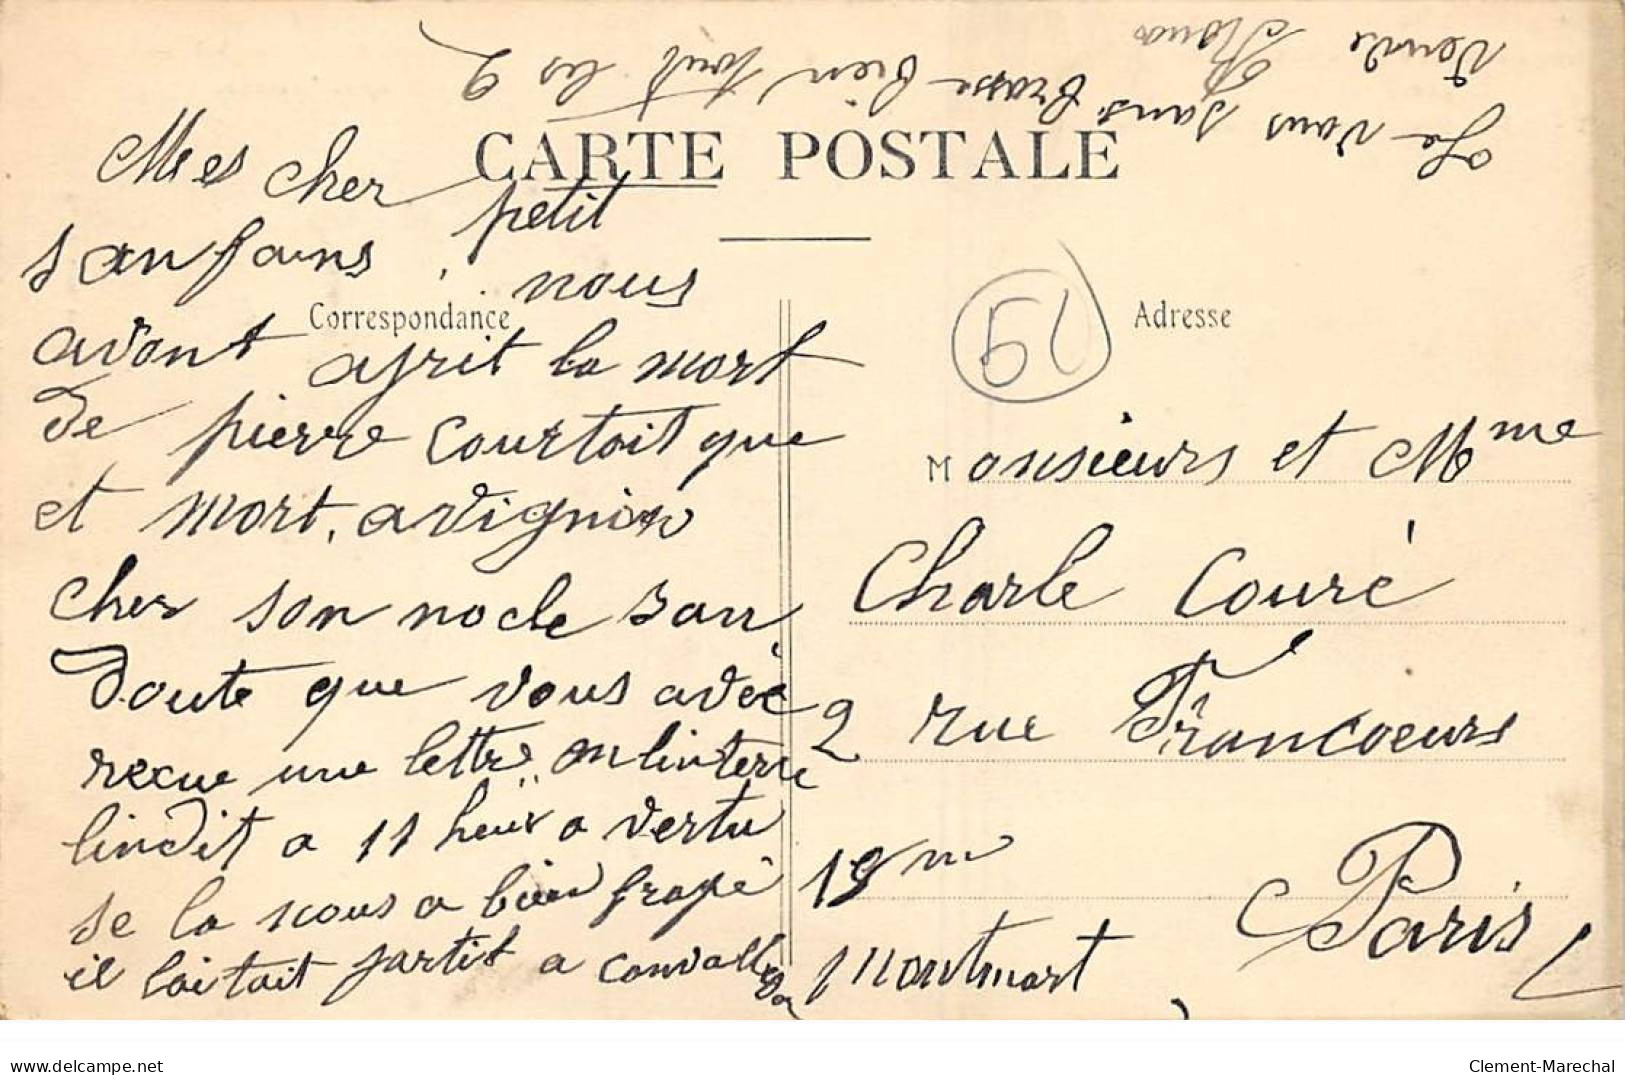 Je vous sans brasse bien tout les 2
Veuve
CARTE POSTALE
Mes cher petit
s anfans, nous
Correspondance
avont aprit la mort
de pierre Courtoit que
et mort, avignion
cher son nocle san
Doute que vous avéc
recue une lettre on linterre
lindit a 11 heur a vertu
se la nous a bien frapé
il laitait partit a convalles
Adresse
51
Monsieurs et Mme
Charle Couré
2 rue Francoeurs
18 me
Montmart
Paris
www.delcampe.net
Clement-Marechal